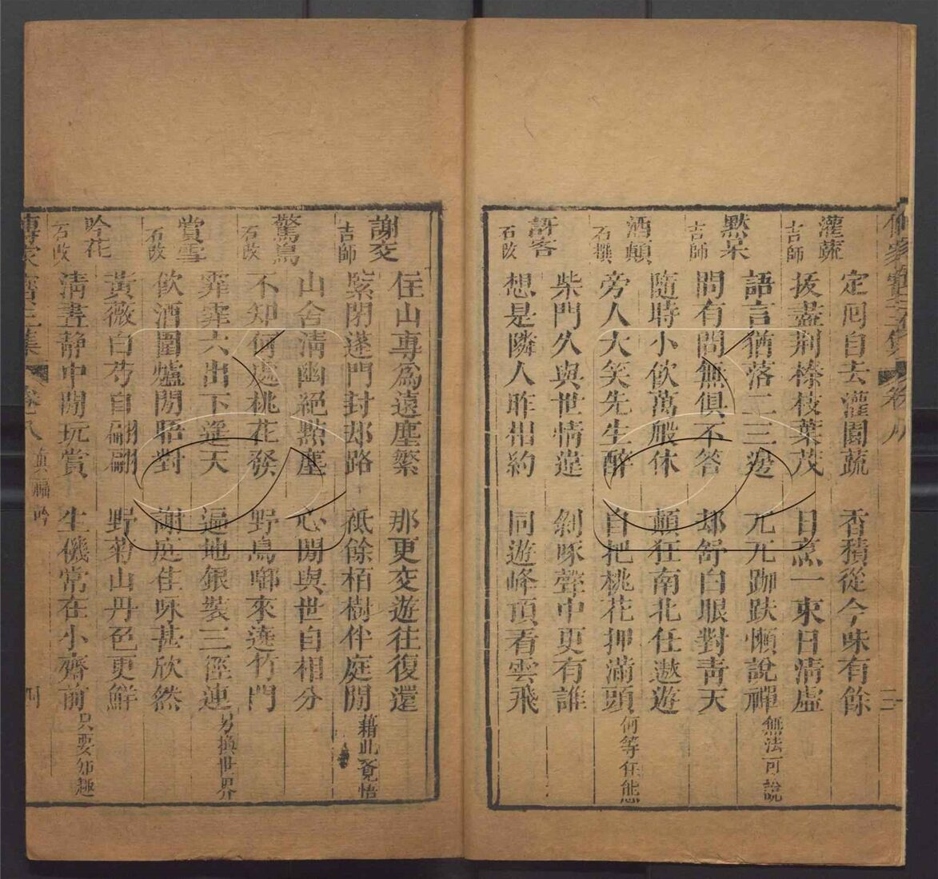 傳家寶三集 卷八 三
定囘自去灌園蔬 香積從今味有餘
灌蔬 吉師
拔盡荆榛枝葉茂 日烹一束日清虛
語言猶落二三邊 兀兀跏趺懶說禪 無法可說
默呆 吉師
問有問無俱不答 却舒白眼對青天
隨時小飲萬般休 顛狂南北任遨遊
酒顛 石撰
旁人大笑先生醉 自把桃花押滿頭 何等任態
柴門久與世情違 剝啄聲中更有誰
訝客 石改
想是隣人昨相約 同遊峰頂看雲飛
住山專爲遠塵繁 那更交遊往復還
謝交 吉師
緊閉蓬門封却路 祇餘栢樹伴庭閒 藉此覺悟
山舍清幽絕點塵 心閒與世自相分
驚鳥 石改
不知何處桃花發 野鳥啣來遶竹門
霏霏六出下遥天 遍地銀裝三徑連 另換世界
賞雪 石改
飲酒圍爐閒晤對 謝庭佳咏甚欣然
黃薇白芍自翩翩 野菊山丹色更鮮
吟花 石改
清晝靜中閒玩賞 生機常在小齋前 只要知趣
傳家寶三集 卷八 真福吟 四